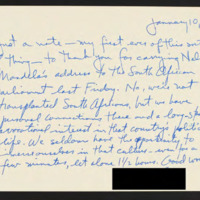 January 10,
not a note — my first ever of this sort
thing — to thank you for carrying Nel
Mandela's address to the South African
arliament last Friday. No, we're not
transplanted South Africans, but we have
personal connections there and a long-st
vocational interest in that country's politic
life. We seldom have the opportunity to
immerse ourselves in that culture even for a
few minutes, let alone 1½ hours. Good wor